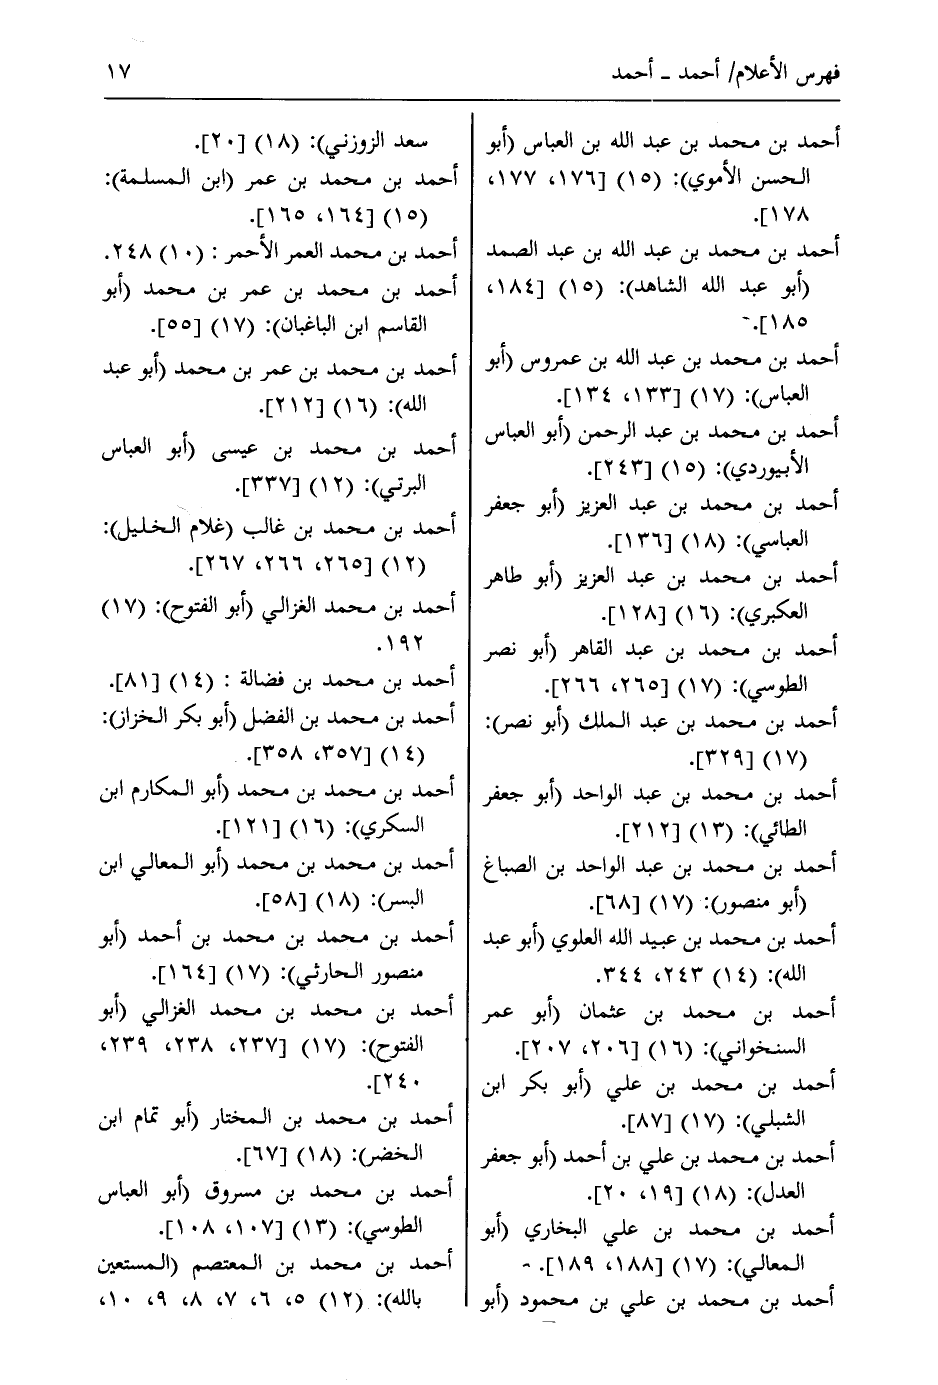 فهرس الأعلام/ أحمد ـ أحمد
١٧
أحمد بن محمد بن عبد الله بن العباس (أبو
الحسن الأموي): (١٥) [١٧٦، ١٧٧،
١٧٨].
أحمد بن محمد بن عبد الله بن عبد الصمد
(أبو عبد الله الشاهد): (١٥) [١٨٤،
١٨٥].
أحمد بن محمد بن عبد الله بن عمروس (أبو
العباس): (١٧) [١٣٣، ١٣٤].
أحمد بن محمد بن عبد الرحمن (أبو العباس
الأبيوردي): (١٥) [٢٤٣].
أحمد بن محمد بن عبد العزيز (أبو جعفر
العباسي): (١٨) [١٣٦].
أحمد بن محمد بن عبد العزيز (أبو طاهر
العكبري): (١٦) [١٢٨].
أحمد بن محمد بن عبد القاهر (أبو نصر
الطوسي): (١٧) [٢٦٥، ٢٦٦].
أحمد بن محمد بن عبد الملك (أبو نصر):
(١٧) [٣٢٩].
أحمد بن محمد بن عبد الواحد (أبو جعفر
الطائي): (١٣) [٢١٢].
أحمد بن محمد بن عبد الواحد بن الصباغ
(أبو منصور): (١٧) [٦٨].
أحمد بن محمد بن عبيد الله العلوي (أبو عبد
الله): (١٤) ٢٤٣، ٣٤٤.
أحمد بن محمد بن عثمان (أبو عمر
السنخواني): (١٦) [٢٠٦، ٢٠٧].
أحمد بن محمد بن علي (أبو بكر ابن
الشبلي): (١٧) [٨٧].
أحمد بن محمد بن علي بن أحمد (أبو جعفر
العدل): (١٨) [١٩، ٢٠].
أحمد بن محمد بن علي البخاري (أبو
المعالي): (١٧) [١٨٨، ١٨٩].
أحمد بن محمد بن علي بن محمود (أبو
سعد الزوزني): (١٨) [٢٠].
أحمد بن محمد بن عمر (ابن المسلمة):
(١٥) [١٦٤، ١٦٥].
أحمد بن محمد العمر الأحمر : (١٠) ٢٤٨.
أحمد بن محمد بن عمر بن محمد (أبو
القاسم ابن الباغبان): (١٧) [٥٥].
أحمد بن محمد بن عمر بن محمد (أبو عبد
الله): (١٦) [٢١٢].
أحمد بن محمد بن عيسى (أبو العباس
البرتي): (١٢) [٣٣٧].
أحمد بن محمد بن غالب (غلام الخليل):
(١٢) [٢٦٥، ٢٦٦، ٢٦٧].
أحمد بن محمد الغزالي (أبو الفتوح): (١٧)
١٩٢.
أحمد بن محمد بن فضالة : (١٤) [٨١].
أحمد بن محمد بن الفضل (أبو بكر الخزاز):
(١٤) [٣٥٧، ٣٥٨].
أحمد بن محمد بن محمد (أبو المكارم ابن
السكري): (١٦) [١٢١].
أحمد بن محمد بن محمد (أبو المعالي ابن
البسر): (١٨) [٥٨].
أحمد بن محمد بن محمد بن أحمد (أبو
منصور الحارثي): (١٧) [١٦٤].
أحمد بن محمد بن محمد الغزالي (أبو
الفتوح): (١٧) [٢٣٧، ٢٣٨، ٢٣٩،
٢٤٠].
أحمد بن محمد بن المختار (أبو تمام ابن
الخضر): (١٨) [٦٧].
أحمد بن محمد بن مسروق (أبو العباس
الطوسي): (١٣) [١٠٧، ١٠٨].
أحمد بن محمد بن المعتصم (المستعين
بالله): (١٢) ٥، ٦، ٧، ٨، ٩، ١٠،